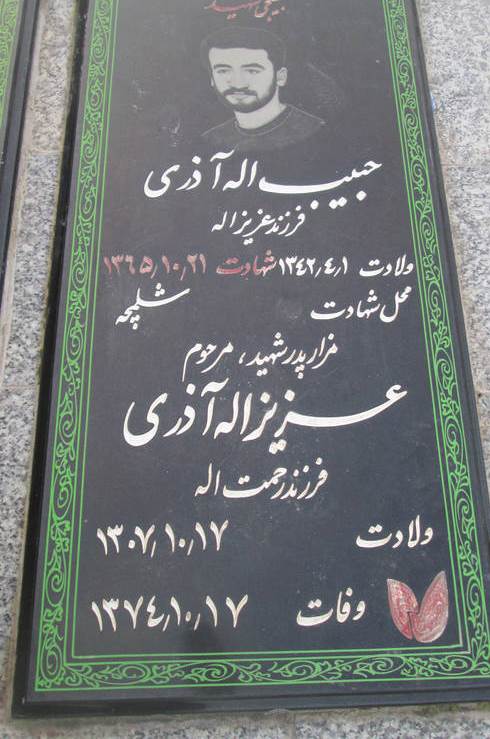 شهید
حبیب اله آذری
فرزند عزیزاله
ولادت ۱۳۴۲٫۴٫۱ شهادت ۱۳۶۵٫۱۰٫۲۱
محل شهادت شلمچه
مزار پدر شهید، مرحوم
عزیزاله آذری
فرزند رحمت اله
ولادت ۱۳۰۷٫۱۰٫۱۷
وفات ۱۳۷٤٫۱۰٫۱۷